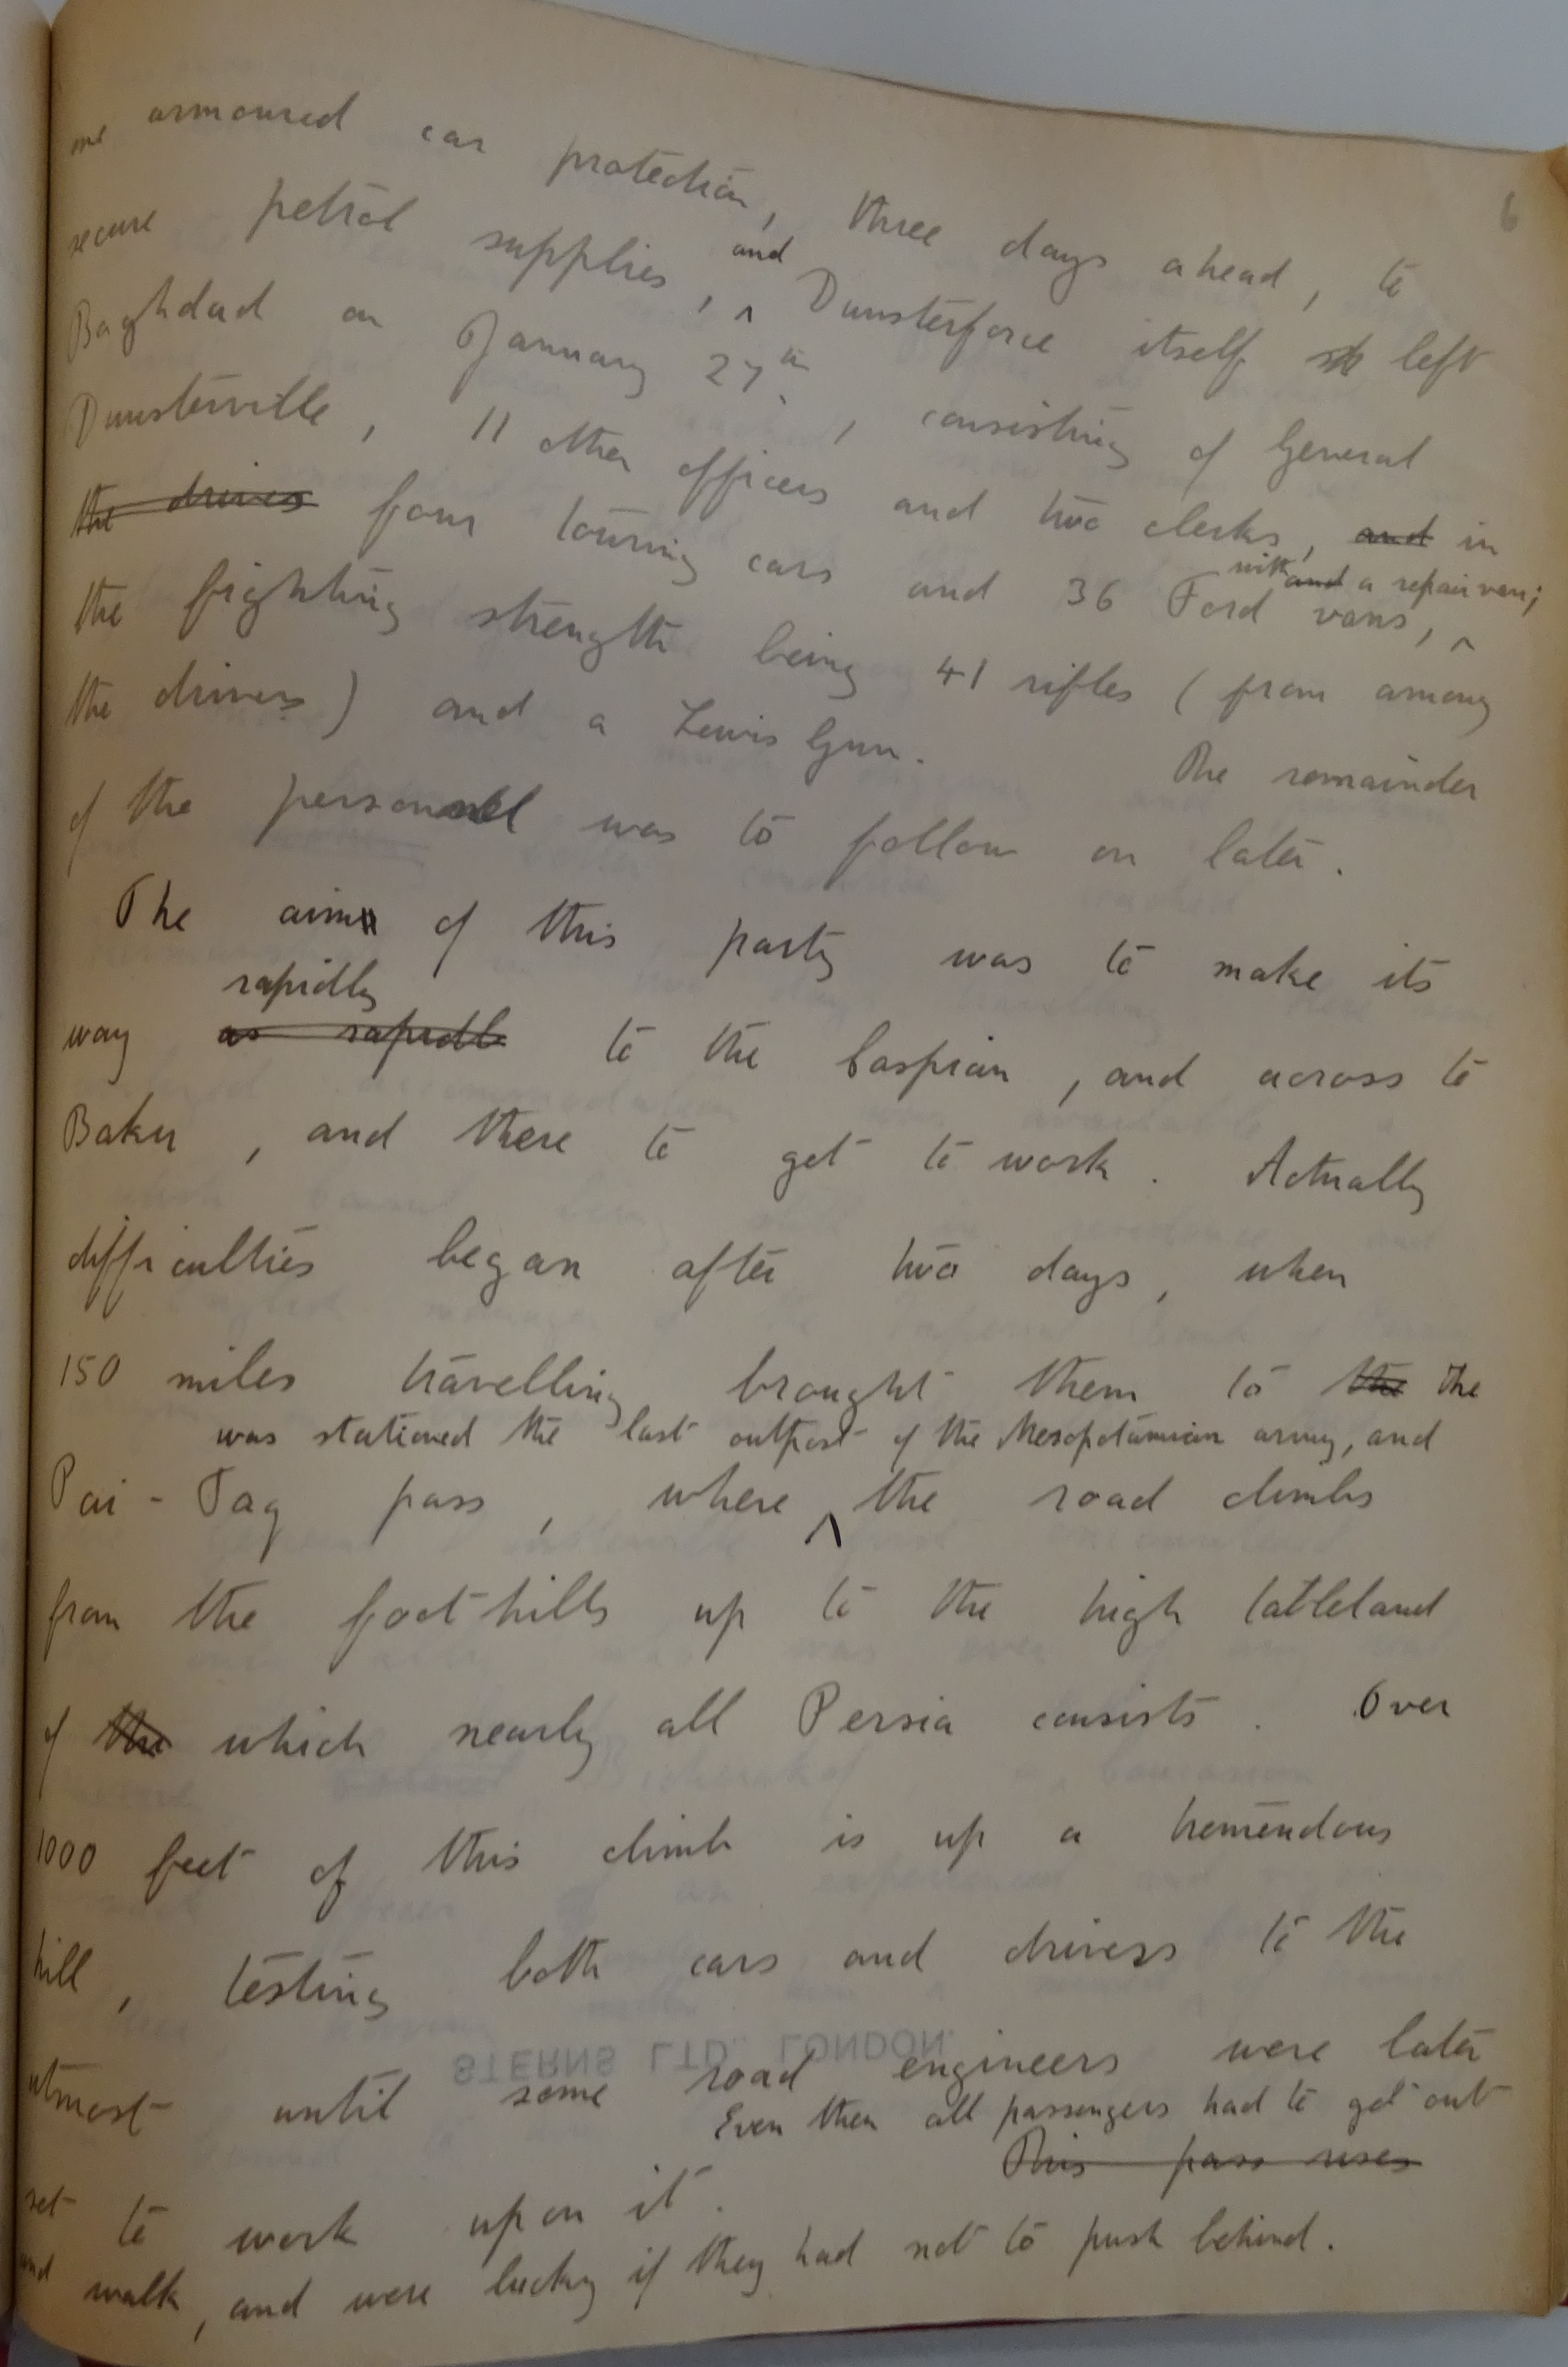 6
one armoured car protection, three days ahead, to
secure petrol supplies, and Dunsterforce itself left
Baghdad on January 27th, consisting of General
Dunsterville, 11 other officers and two clerks, and in
with and a repair van;
the drivers four touring cars and 36 Ford vans,
the fighting strength being 41 rifles (from among
the drivers) and a Lewis Gun. The remainder
of the personnel was to follow on later.
The aim of this party was to make its
rapidly
way as rapidl to the Caspian, and across to
Baku, and there to get to work. Actually
difficulties began after two days, when
150 miles travelling brought them to the The
was stationed the last outpost of the Mesopotamian army, and
Pai-Tag pass, where ^ the road climbs
from the foot-hills up to the high tableland
of the which nearly all Persia consists. Over
1000 feet of this climb is up a tremendous
hill, testing both cars and drivers to the
STERNS LTD. LONDON.
utmost until some road engineers were later
Even then all passengers had to get out
This pass rises
set to work upon it.
and walk, and were lucky if they had not to push behind.